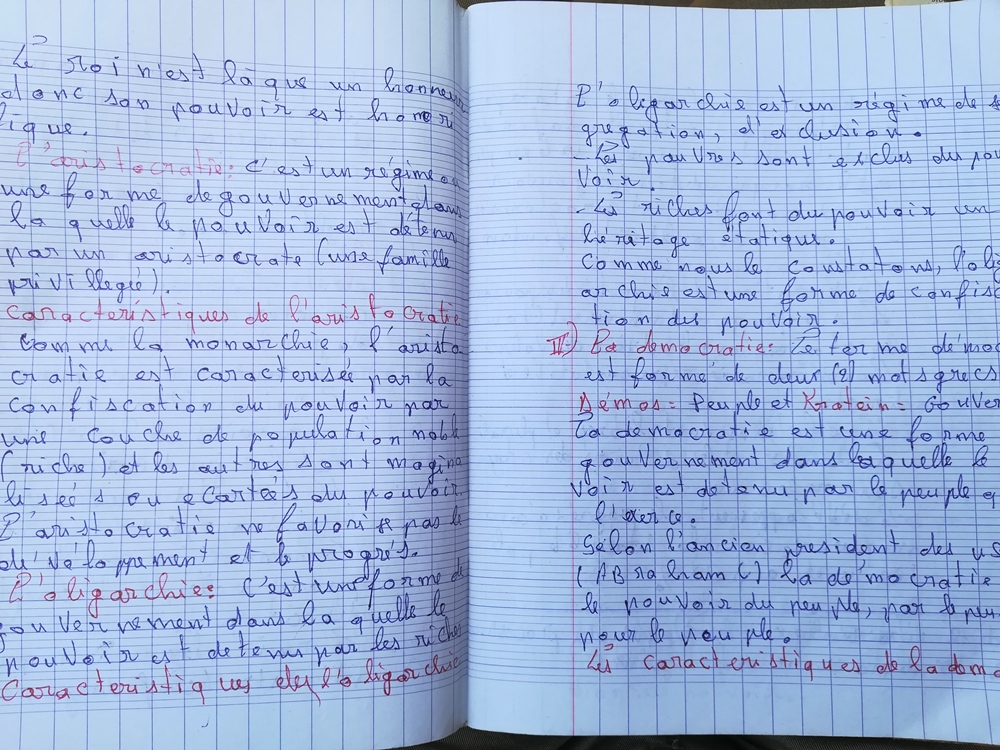 Le roi n'est là que un honneur
donc son pouvoir est honori
fique.
L'aristocratie: c'est un régime ou
une forme de gouvernement dans
la quelle le pouvoir est détenu
par un aristocrate (une famille
privillegié).
Caractéristiques de l'aristocratie
Comme la monarchie, l'aristo
cratie est caractérisée par la
confiscation du pouvoir par
une couche de population noble
(riche) et les autres sont magina
liseés ou ecarteés du pouvoir.
L'aristocratie ne favorise pas le
dévéloppement et le progrés.
L'oligarchie: C'est une forme de
gouvernement dans la quelle le
pouvoir est detenu par les riches
Caracteristiques de l'oligarchie
L'oligarchie est un régime de s
grégation, d'exclusion.
- Les pauvres sont exclus du pou
voir.
- Les riches font du pouvoir un
héritage étatique.
Comme nous le constatons, l'olig
archie est une forme de confisc
tion du pouvoir.
II) La democratie: Le terme démoc
est formé de deux (2) mots grecs
Démos = Peuple et Kratein = Gouver
La democratie est une forme
gouvernement dans laquelle le
voir est detenu par le peuple q
l'exerce.
Sélon l'ancien président des us
(ABraham () La démocratie
le pouvoir du peuple, par le peu
pour le peuple.
Les caracteristiques de la démo